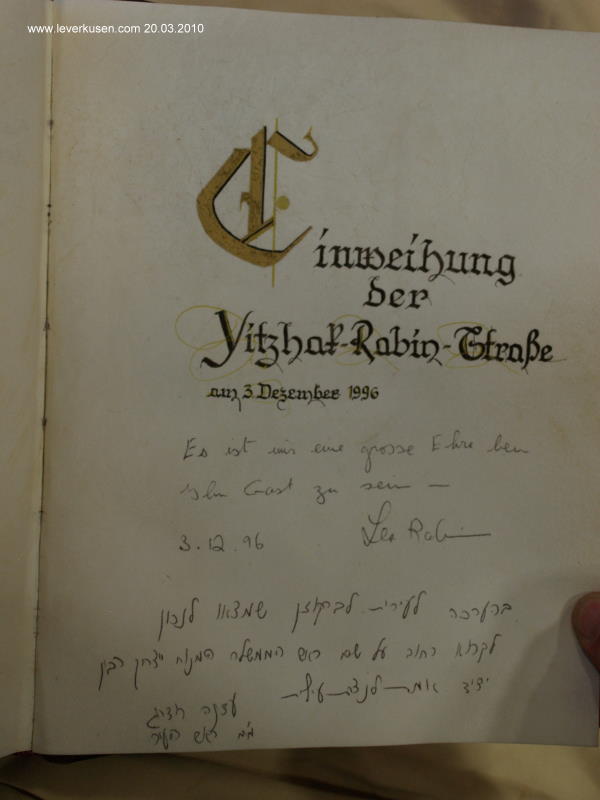 www.leverkusen.com 20.03.2010
Einweihung
der
Yitzhak-Rabin-Straße
am 3. Dezember 1996
Es ist mir eine grosse Ehre bei
Gast zu sein –
3.12.96 Lea Rabin
בהערכה לעירית לברקוזן שמצאו לנכון
לקרוא רחוב על שם ראש הממשלה המנוח יצחק רבין
ידיד אמת לנצרת עילית
ראש העיר